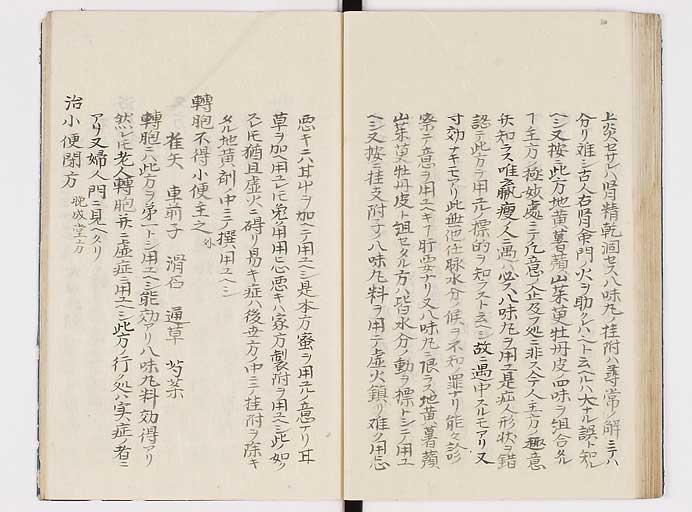 上炎セサレハ腎精乾涸セス八味丸ノ桂附ハ尋常ノ解ニテハ
分リ難シ古人右腎命門ノ火ヲ助クルハヘト云ヘルハ大ナル誤ト知ル
ヘシ又按ニ此方地黄薯蕷山茱萸牡丹皮四味ヲ組合タル
主方ノ極妙處ニテ凡意ノ企及フ処ニ非ス今人主方ノ趣意
ヲ知ラス唯羸瘦ノ人ニ遇ハ必ス八味丸ヲ用ユ是症人形状ヲ錯
認テ此方ヲ用テノ標的ヲ知ラスト云ヘシ故ニ遇中スルモアリ又
寸効ナキモアリ此無他仕脉水分ノ候ヲ不知ノ罪ナリ能々診
察テ意ヲ用ユヘキ肝要ナリ又八味丸ニ限ラス地黄薯蕷
山茱萸牡丹皮ト組セタル方ハ皆水分ノ動ヲ標トシテ用ユ
ヘシ又按ニ桂支附子ノ八味丸料ヲ用テ虚火鎮リ難ク用
悪キニハ其中ヲ加ヘテ用ユヘシ是本方蜜ヲ用ユル意アリ甘
草ヲ加ヘ用ユレ𪜈弟用用心悪キハ家方製附ヲ用ユヘシ此ノ如ク
スレ𪜈猶且虚火ニ碍リ易キ症ハ後世方ノ中ニテ桂附ヲ除キ
タル地黄剤ノ中ニテ撰用ユヘシ
轉胞不得小便主之
車前子 滑石 通草 芍薬
轉胞ニハ此方ヲ第一トシ用ユヘシ能効アリ八味丸料効得アリ
然レ𪜈老人轉胞并ニ虚症ニ用ユヘシ此方ノ行ノ処ハ実症者ニ
アリ又婦人門ニ見ヘタリ
治小便閉方 晩成堂方